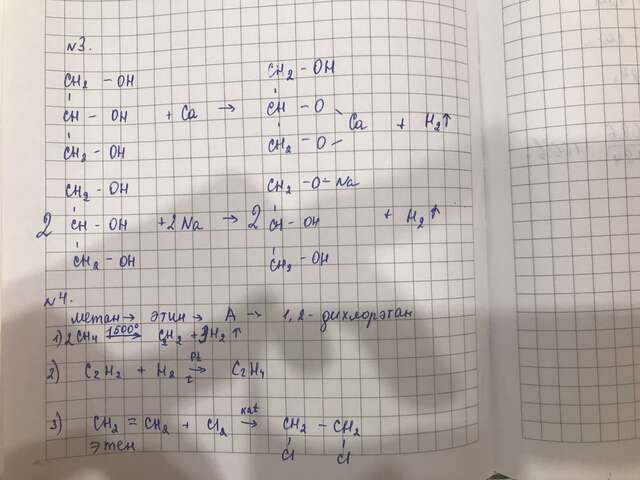 №3.
CH₂ - OH CH₂ - OH
CH - OH + Ca → CH - O
CH₂ - OH CH₂ - O - Ca + H₂↑
CH₂ - OH CH₂ - O - Na
2 CH - OH + 2 Na → 2 CH - OH + H₂↑
CH₂ - OH CH₂ - OH
№4.
метан → этин → A → 1,2 - дихлорэтан
1) 2CH₄ 1500° → C₂H₂ + 3H₂↑
2) C₂H₂ + H₂ Pt → C₂H₄
3) CH₂ = CH₂ + Cl₂ kat → CH₂ - CH₂
этен Cl Cl